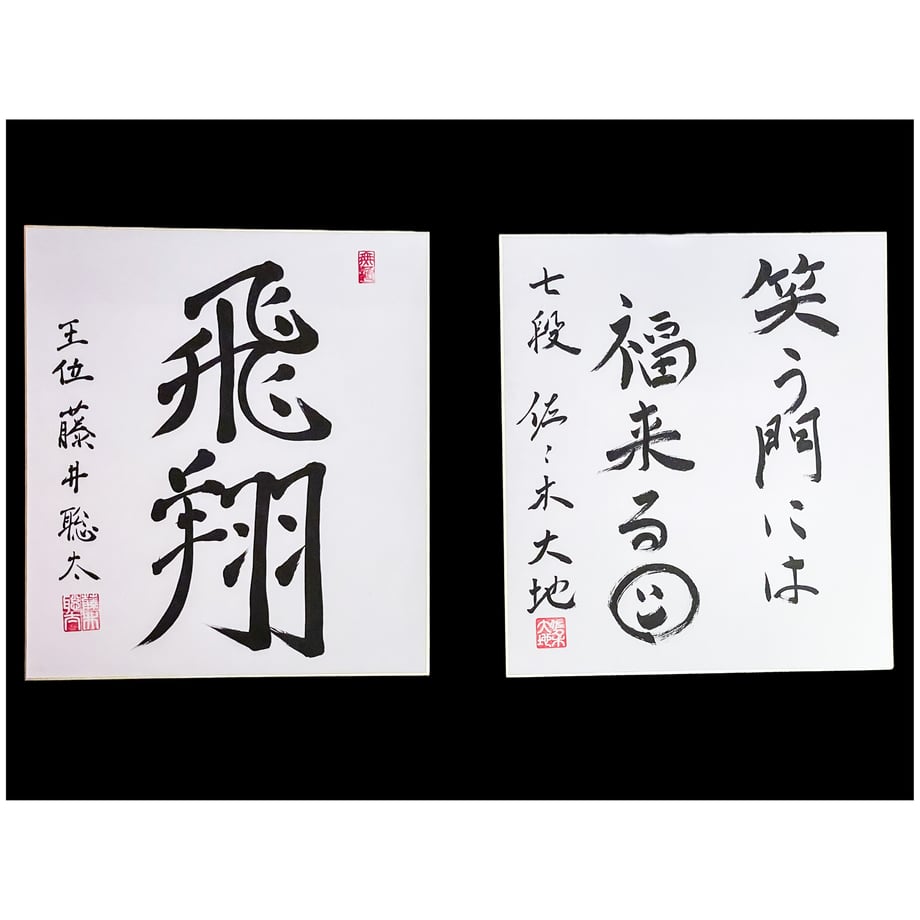 飛翔
王位 藤井聡太
笑う門には
福来る
七段 佐々木大地